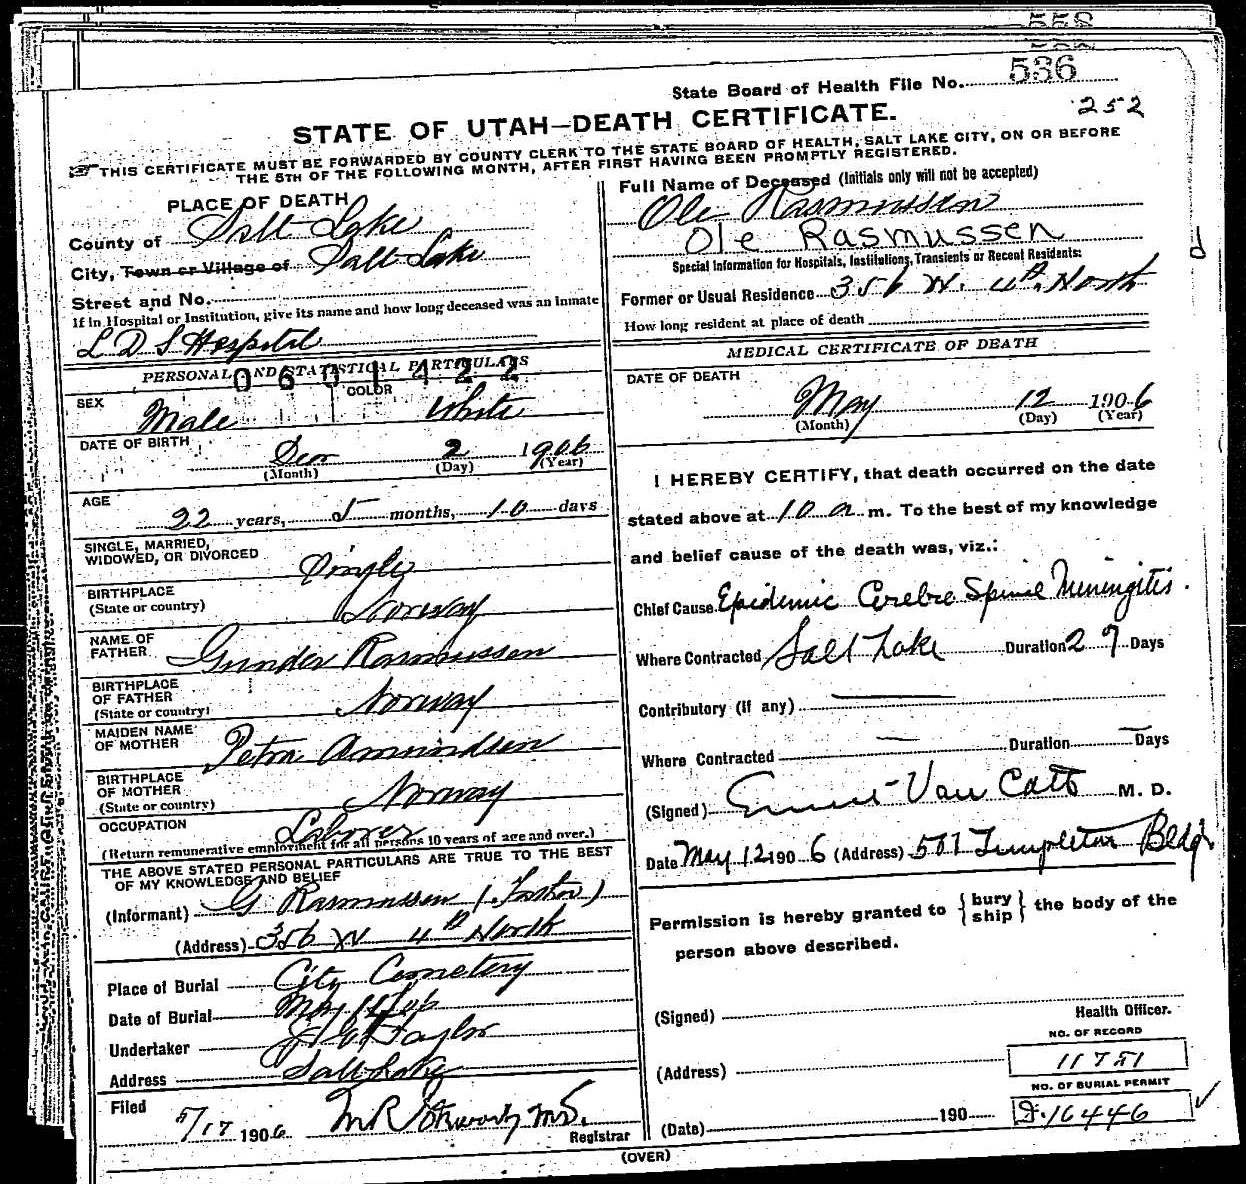 558
State Board of Health File No. 536
252
STATE OF UTAH—DEATH CERTIFICATE.
THIS CERTIFICATE MUST BE FORWARDED BY COUNTY CLERK TO THE STATE BOARD OF HEALTH, SALT LAKE CITY, ON OR BEFORE
THE 5TH OF THE FOLLOWING MONTH, AFTER FIRST HAVING BEEN PROMPTLY REGISTERED.
PLACE OF DEATH
County of Salt Lake
City, Town or Village of Salt Lake
Street and No.
If in Hospital or Institution, give its name and how long deceased was an inmate
L D S Hospital
PERSONAL AND STATISTICAL PARTICULARS
0601422
SEX Male COLOR White
DATE OF BIRTH Dec 2 1906
(Month) (Day) (Year)
AGE 22 years, 5 months, 10 days
SINGLE, MARRIED,
WIDOWED, OR DIVORCED Single
BIRTHPLACE
(State or country) Norway
NAME OF
FATHER Gunder Rasmussen
BIRTHPLACE
OF FATHER
(State or country) Norway
MAIDEN NAME
OF MOTHER Petra Amundsen
BIRTHPLACE
OF MOTHER
(State or country) Norway
OCCUPATION Laborer
(Return remunerative employment for all persons 10 years of age and over.)
THE ABOVE STATED PERSONAL PARTICULARS ARE TRUE TO THE BEST
OF MY KNOWLEDGE AND BELIEF
(Informant) G Rasmussen (Father)
(Address) 356 W 4th North
Place of Burial City Cemetery
Date of Burial May
Undertaker Taylor
Address Salt Lake
Filed
5/17 1906 M.D.
Registrar
Full Name of Deceased (Initials only will not be accepted)
Ole Rasmussen
Ole Rasmussen
Special Information for Hospitals, Institutions, Transients or Recent Residents:
Former or Usual Residence 356 W. 4th. North
How long resident at place of death
MEDICAL CERTIFICATE OF DEATH
DATE OF DEATH
May 12 1906
(Month) (Day) (Year)
I HEREBY CERTIFY, that death occurred on the date
stated above at 10 a m. To the best of my knowledge
and belief cause of the death was, viz.:
Chief Cause Epidemic Cerebro Spinal Meningitis.
Where Contracted Salt Lake Duration 27 Days
Contributory (if any) —
Where Contracted — Duration — Days
(Signed) Van Cott M. D.
Date May 12 1906 (Address) 507 Templeton Bldg
Permission is hereby granted to { bury
ship } the body of the
person above described.
(Signed)
Health Officer.
NO. OF RECORD
(Address) 11751
NO. OF BURIAL PERMIT
(Date) 190 16446
(OVER)